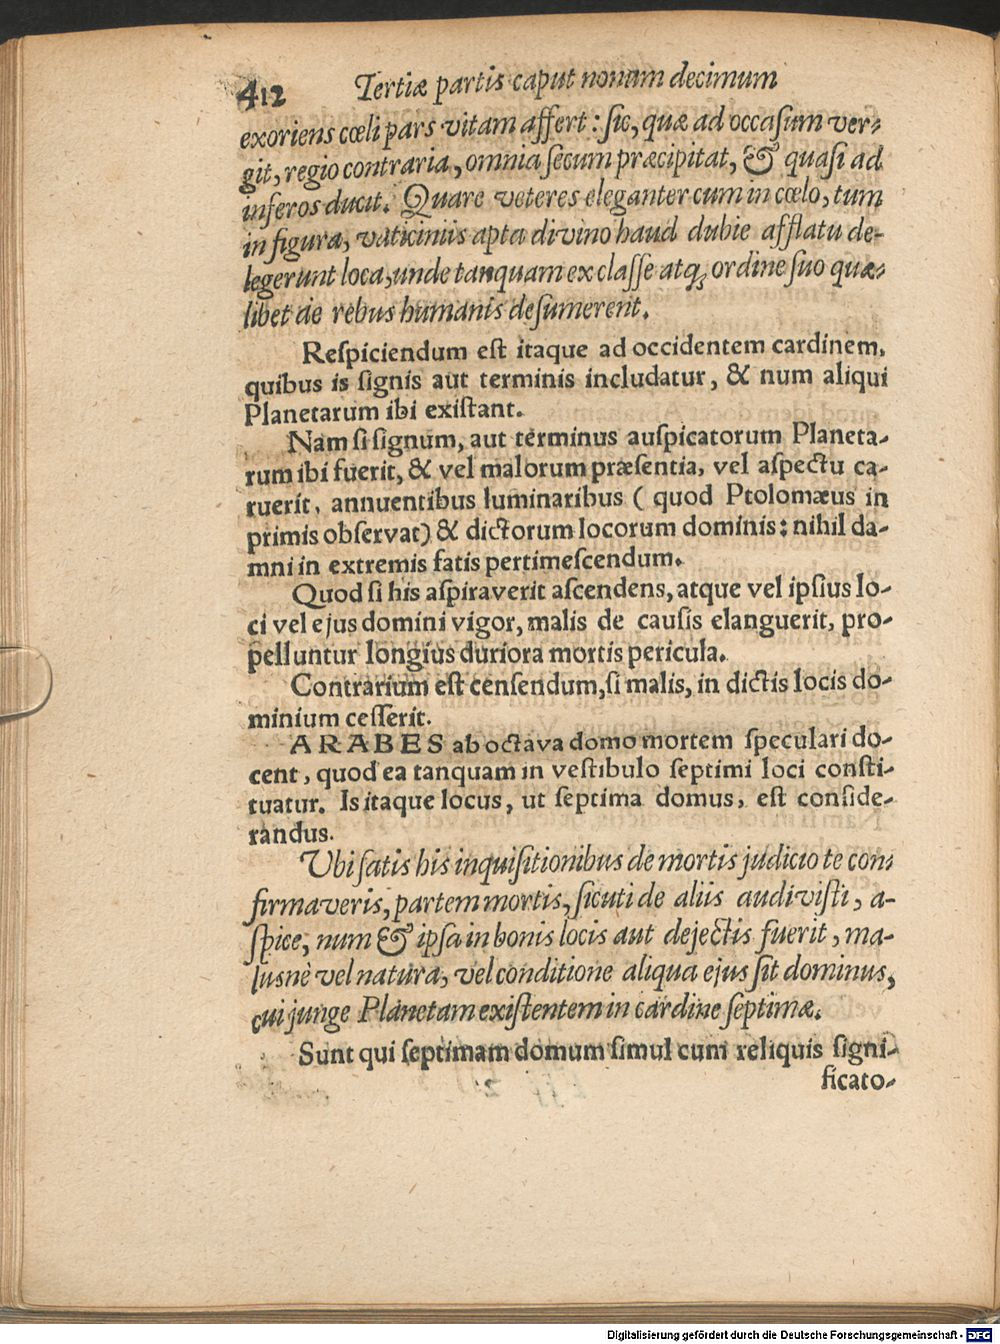 412 Tertiæ partis caput nonum decimum
exoriens cœli pars vitam affert: sic, quæ ad occasum ver-
git, regio contraria, omnia secum præcipitat, & quasi ad
inferos ducit. Quare veteres eleganter cum in cœlo, tum
in figura, vaticiniis apta divino haud dubie afflatu de-
legerunt loca, unde tanquam ex classe atq; ordine suo quæ-
libet de rebus humanis desumerent.
Respiciendum est itaque ad occidentem cardinem,
quibus is signis aut terminis includatur, & num aliqui
Planetarum ibi existant.
Nam si signum, aut terminus auspicatorum Planeta-
rum ibi fuerit, & vel malorum præsentia, vel aspectu ca-
ruerit, annuentibus luminaribus ( quod Ptolomæus in
primis observat) & dictorum locorum dominis: nihil da-
mni in extremis fatis pertimescendum.
Quod si his aspiraverit ascendens, atque vel ipsius lo-
ci vel ejus domini vigor, malis de causis elanguerit, pro-
pelluntur longius duriora mortis pericula.
Contrarium est censendum, si malis, in dictis locis do-
minium cesserit.
ARABES ab octava domo mortem speculari do-
cent, quod ea tanquam in vestibulo septimi loci consti-
tuatur. Is itaque locus, ut septima domus, est conside-
randus.
Ubi satis his inquisitionibus de mortis judicio te con-
firmaveris, partem mortis, sicuti de aliis audivisti, a-
spice, num & ipsa in bonis locis aut dejectis fuerit, ma-
lusnè vel natura, vel conditione aliqua ejus sit dominus,
cui junge Planetam existentem in cardine septimæ.
Sunt qui septimam domum simul cum reliquis signi-
ficato-
Digitalisierung gefördert durch die Deutsche Forschungsgemeinschaft - DFG